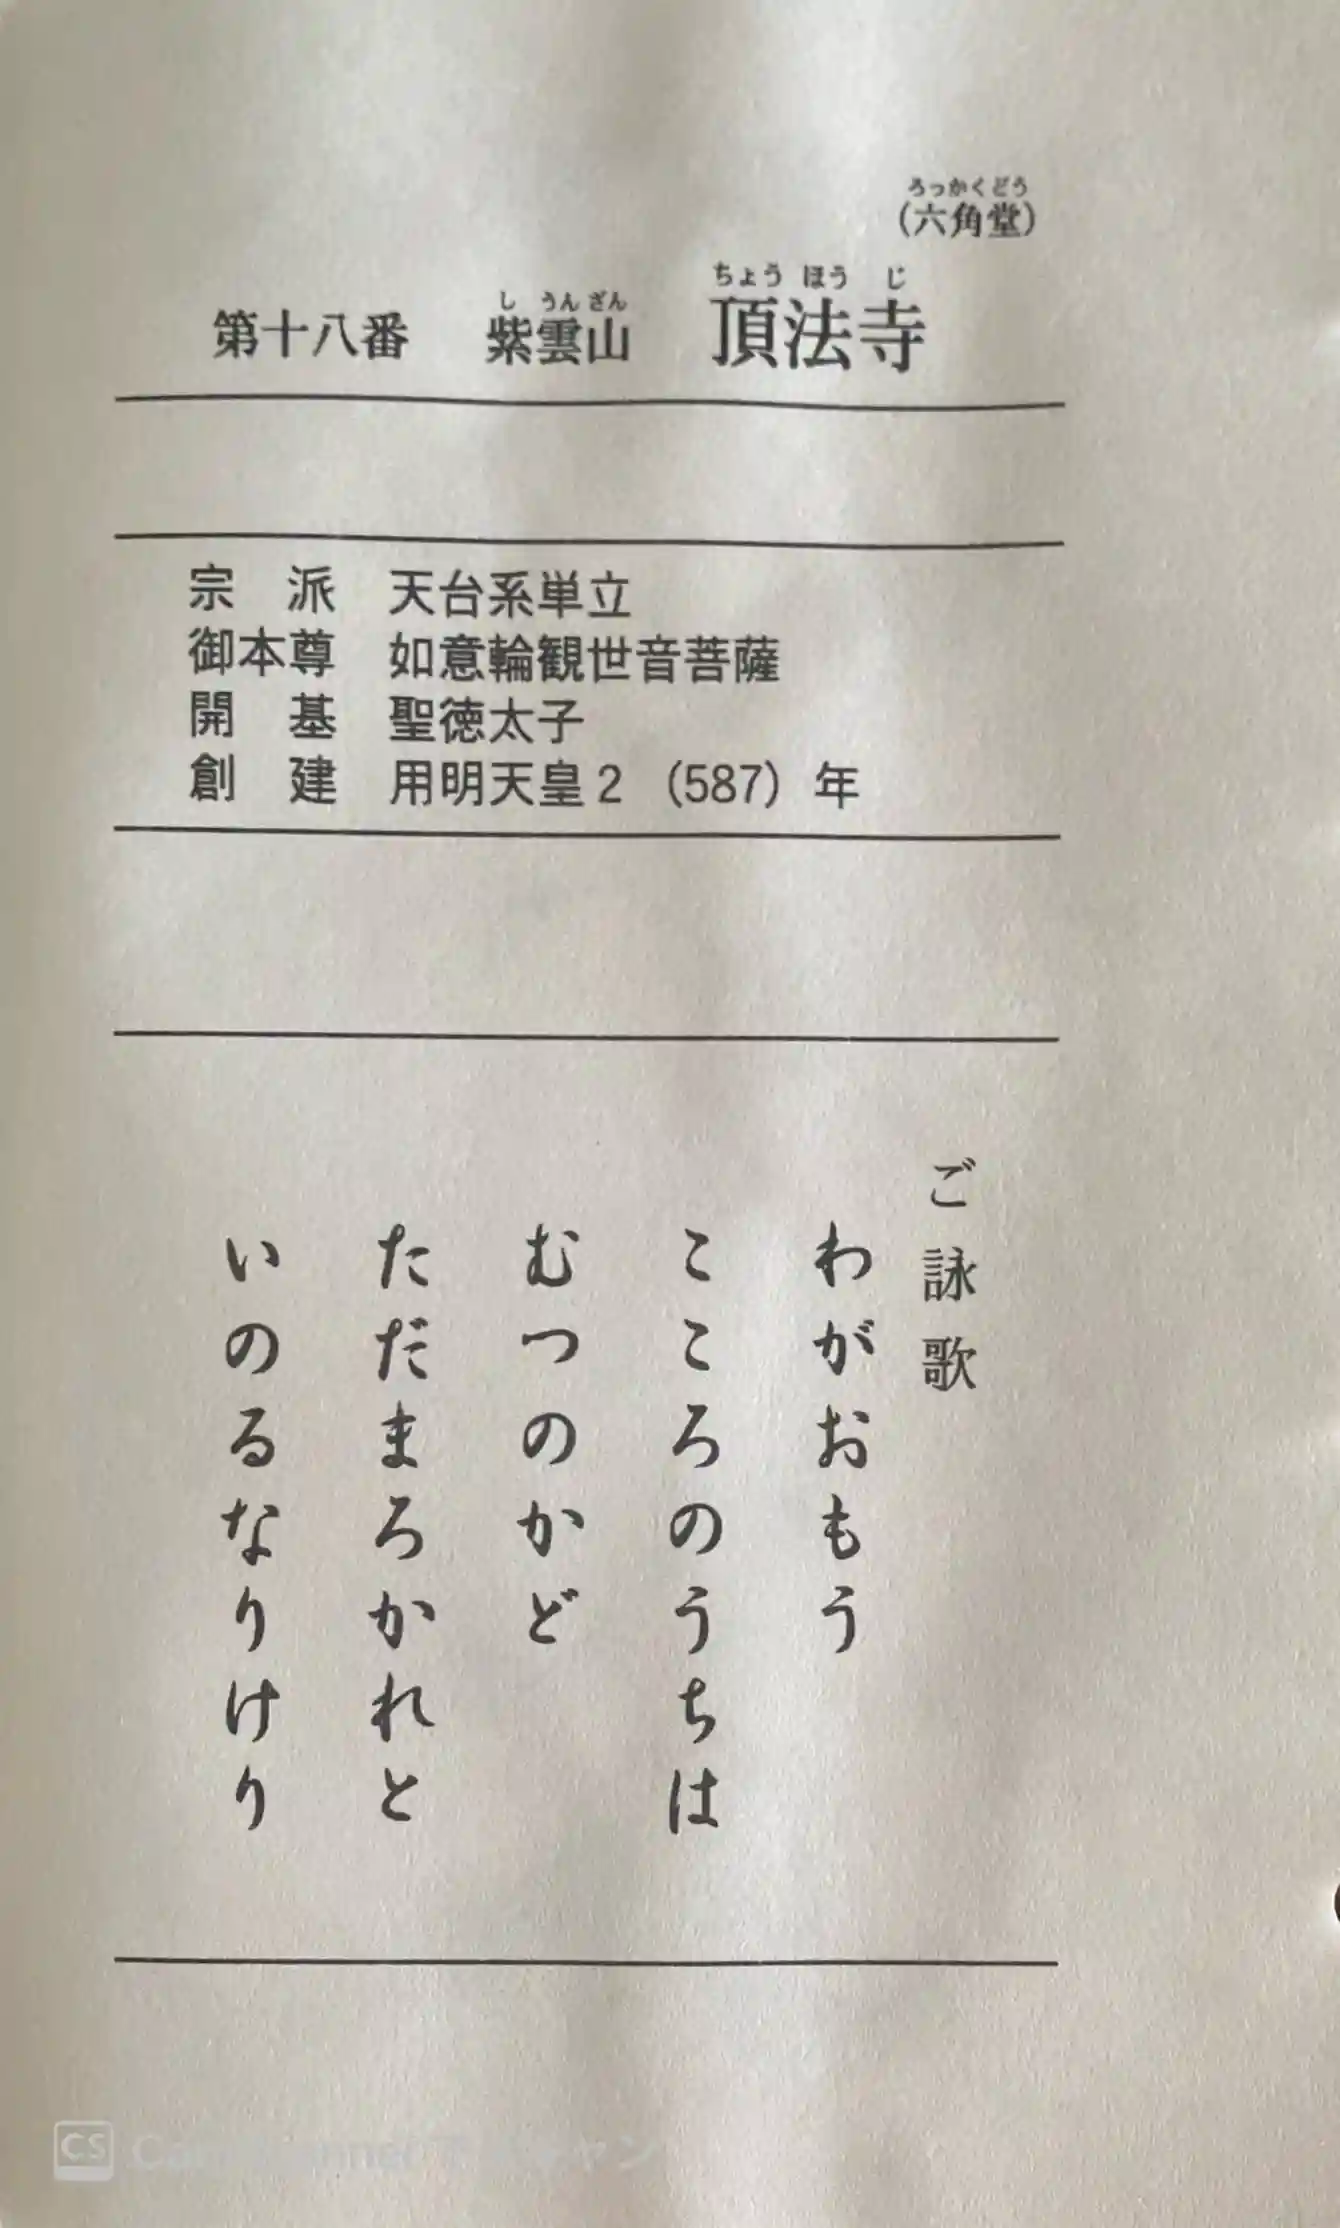 (六角堂)
ろっかくどう
第十八番 紫雲山 頂法寺
し うん ざん ちょう ほう じ
宗 派 天台系単立
御本尊 如意輪観世音菩薩
開 基 聖徳太子
創 建 用明天皇2 (587) 年
ご詠歌
わがおもう
こころのうちは
むつのかど
ただまろかれと
いのるなりけり
CS